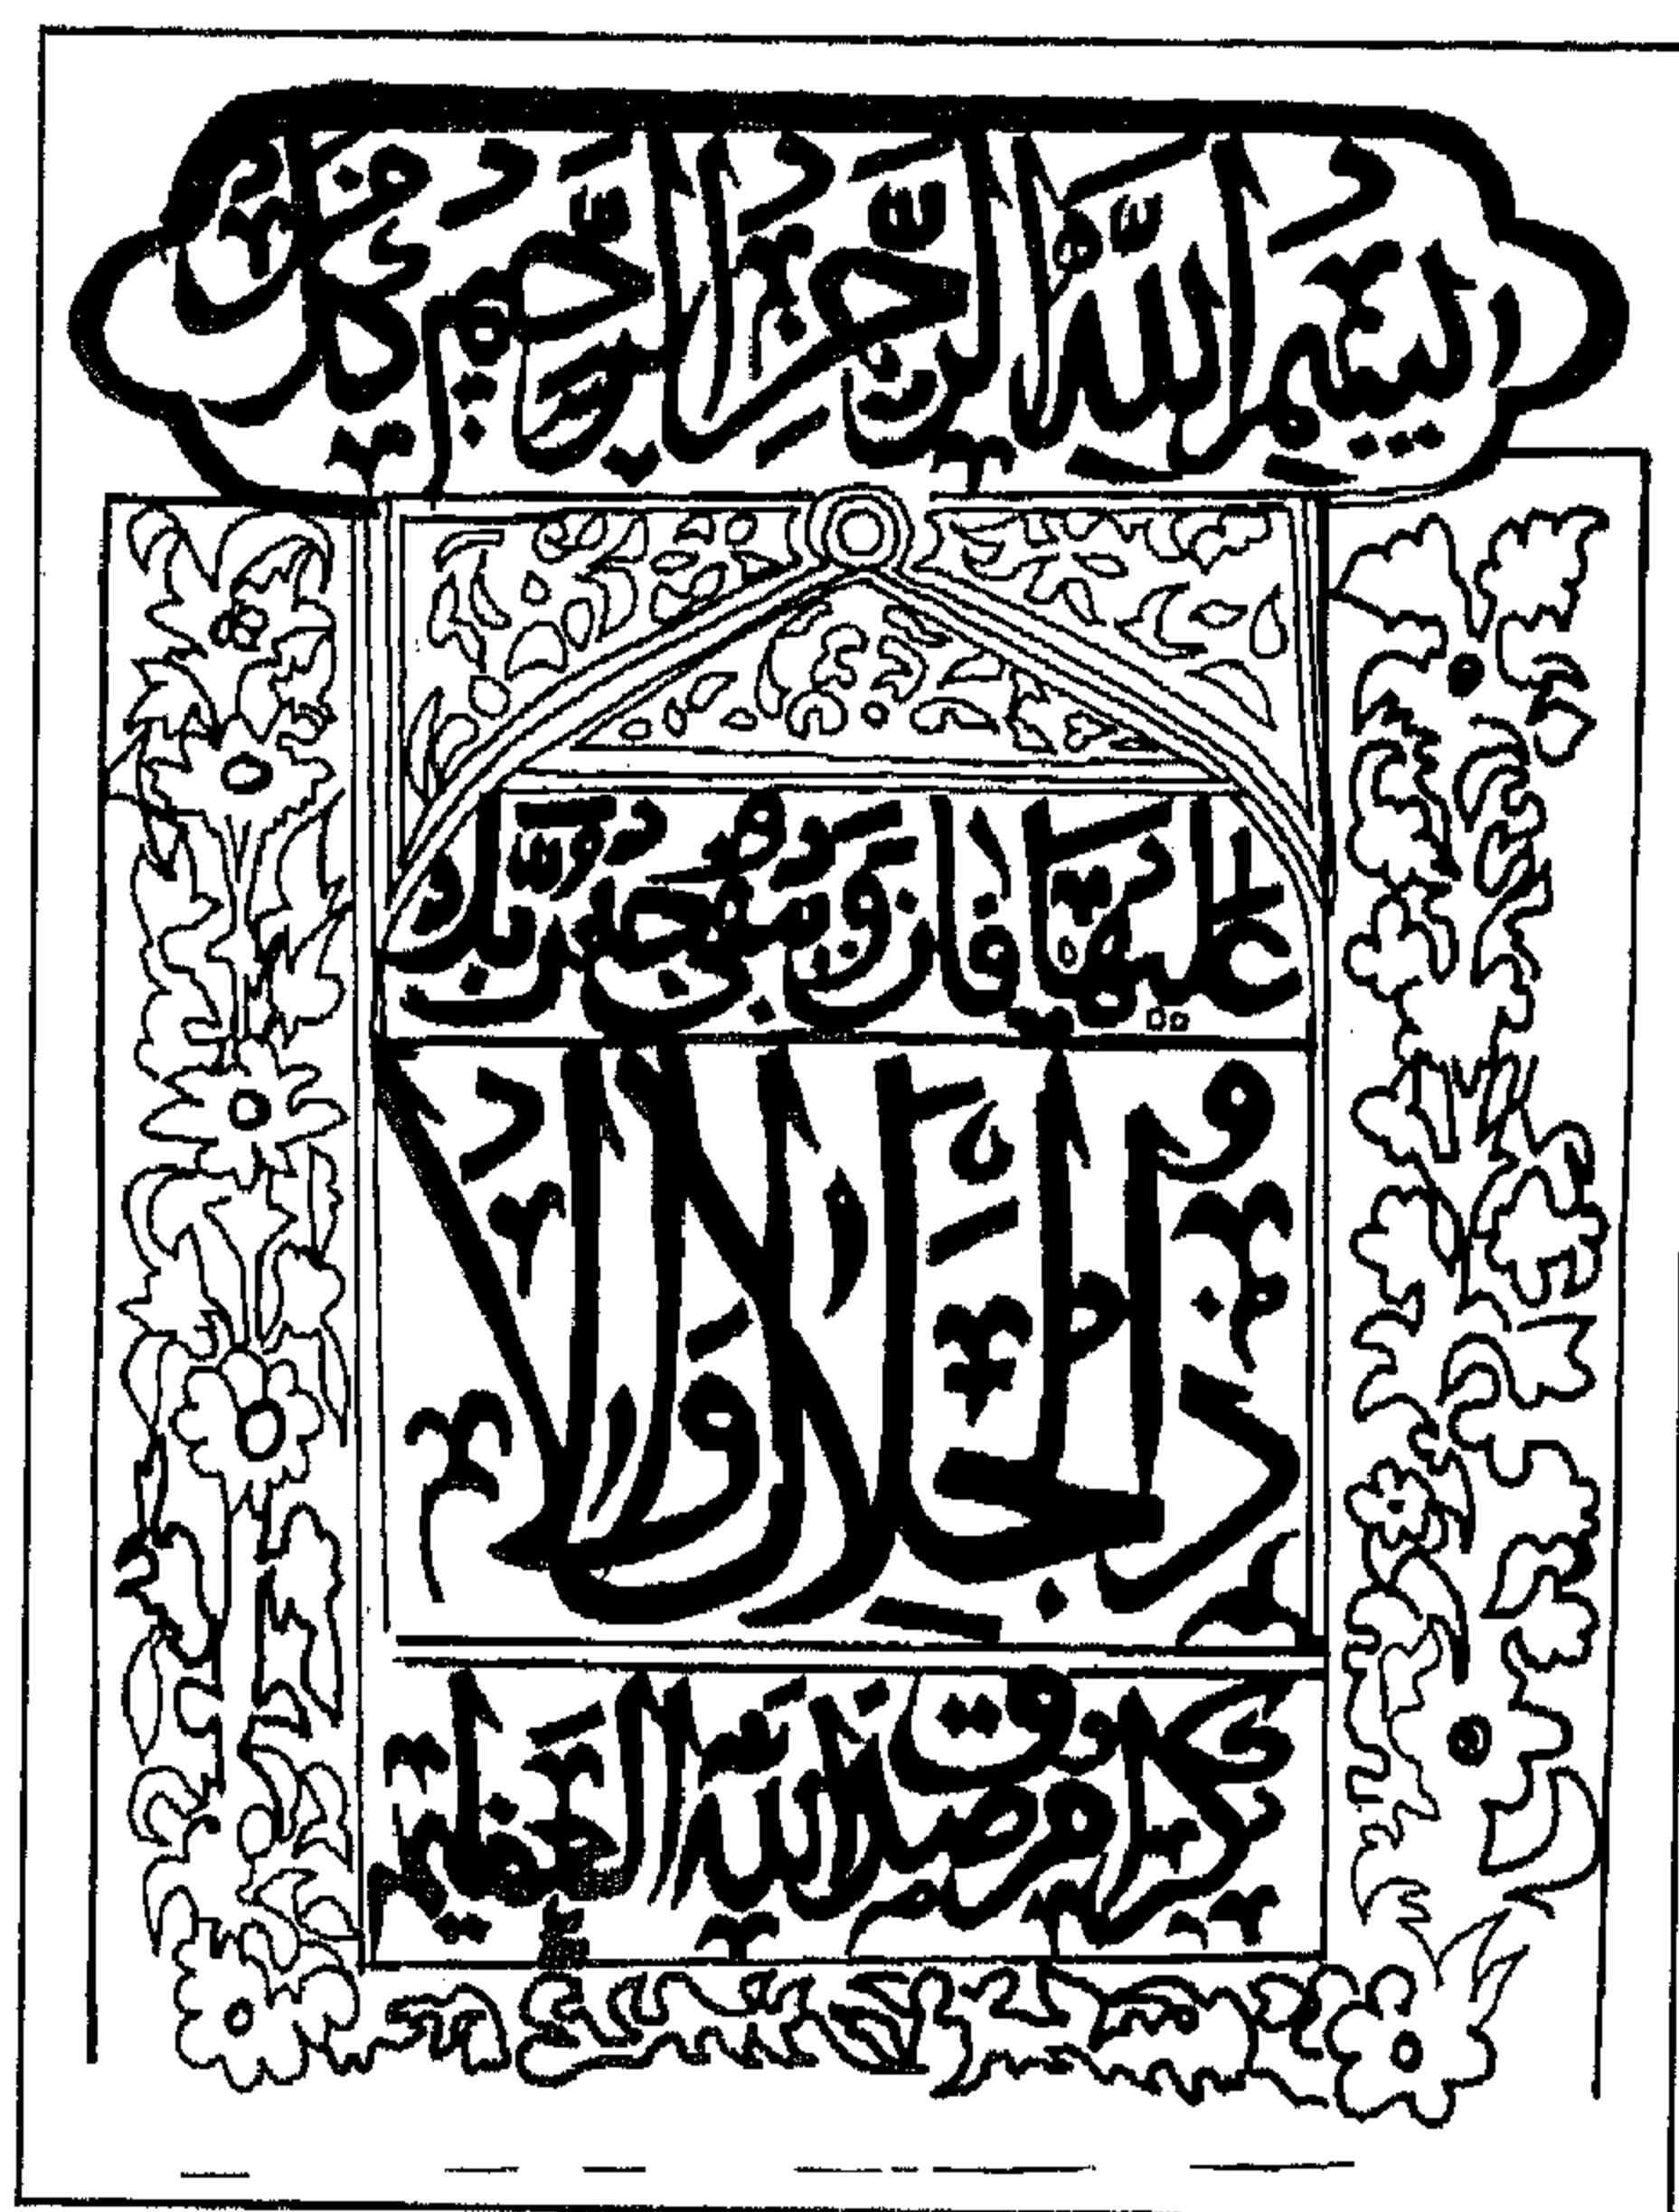 بِسْمِ اللهِ الرَّحْمٰنِ الرَّحِيْمِ كُلُّ مَنْ
عَلَيْهَا فَانٍ وَيَبْقٰى وَجْهُ رَبِّكَ
ذُو الْجَلَالِ وَالْاِ
كْرَامِ وَصَدَقَ اللهُ الْعَظِيْمُ